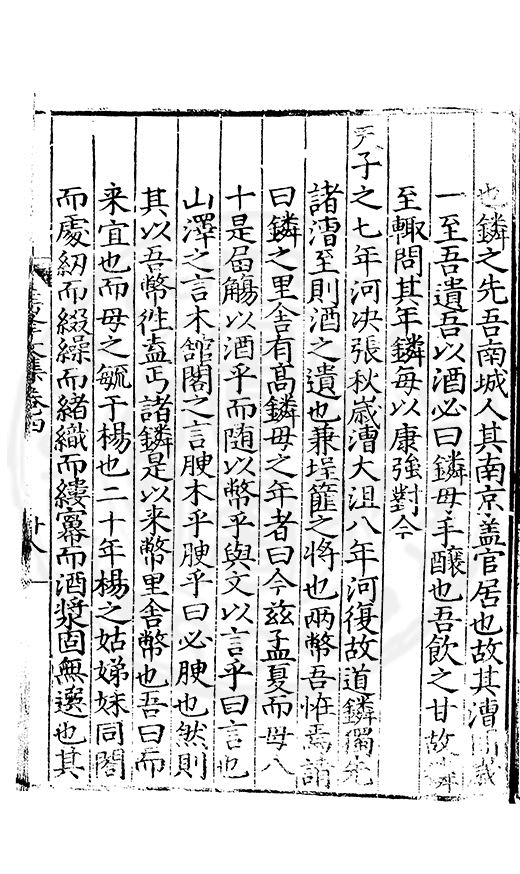 也鏻之先吾南城人其南京盖官居也故其漕歲
一至吾遺吾以酒必曰鏻母手釀也吾飲之甘故鏻
至輙問其年鏻每以康強對今
天子之七年河决張秋歲漕大沮八年河復故道鏻獨先
諸漕至則酒之遺也兼埕簏之將也兩幣吾恠焉請
曰鏻之里舎有髙鏻母之年者曰今玆孟夏而母八
十是畱觴以酒乎而随以幣乎與文以言乎曰言也
山澤之言木舘閣之言腴木乎腴乎曰必腴也然則
其以吾幣徃盍丐諸鏻是以来幣里舎幣也吾曰而
来宜也而母之毓于楊也二十年楊之姑娣妹同閤
而處紉而綴繰而緒織而縷冪而酒漿固無選也其
文集卷四
廿八